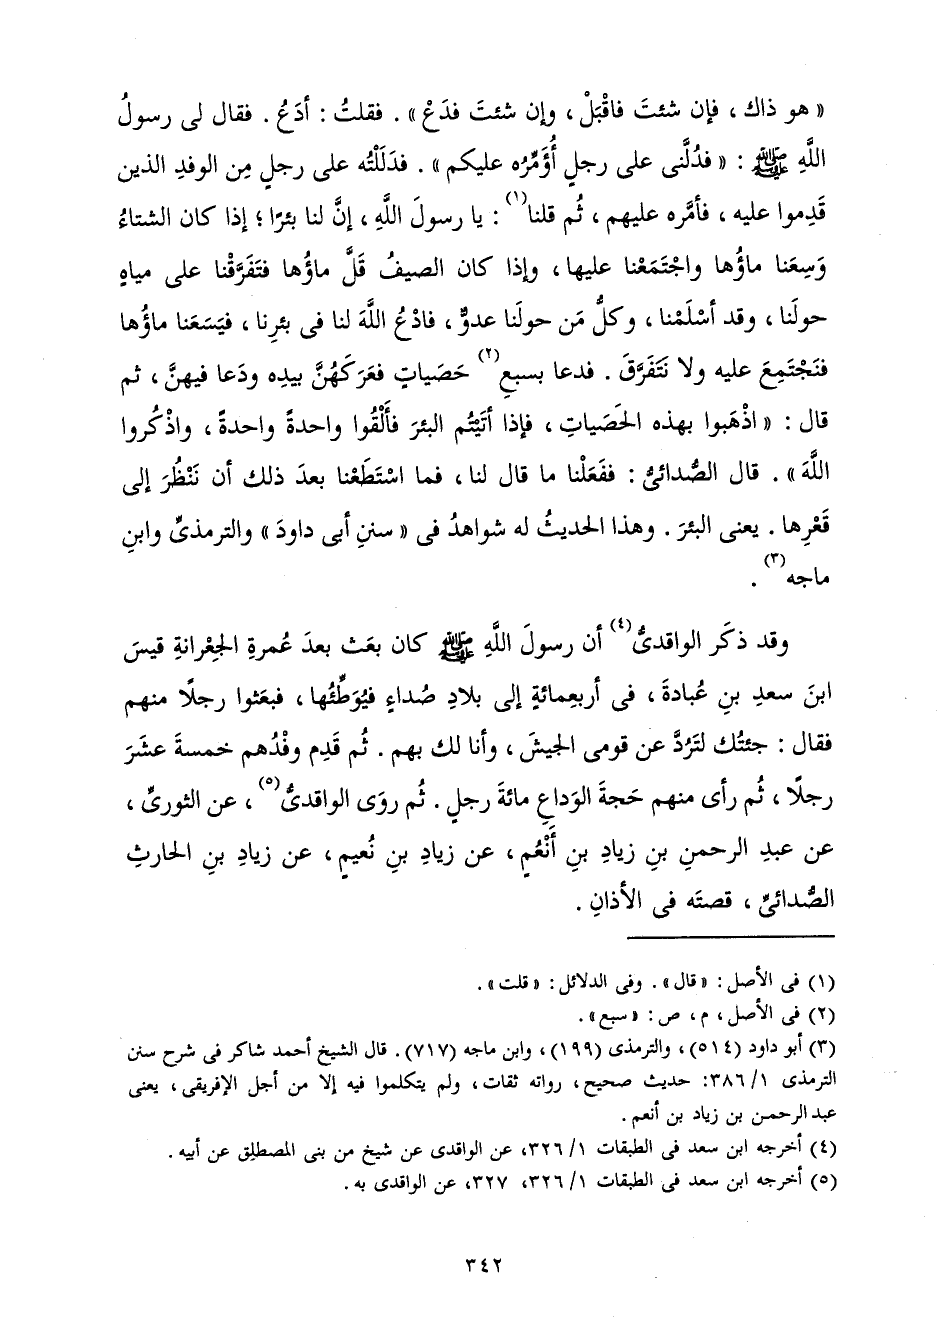 « هو ذاك ، فإن شئتَ فاقْبَلْ ، وإن شئتَ فدَعْ » . فقلتُ : أدَعُ . فقال لى رسولُ
اللَّهِ ﷺ : « فدُلَّنى على رجلٍ أُؤَمِّرُه عليكم » . فدَلَلْتُه على رجلٍ مِن الوفدِ الذين
قَدِموا عليه ، فأمَّره عليهم ، ثُم قلنا(١) : يا رسولَ اللَّهِ ، إنَّ لنا بئرًا ؛ إذا كان الشتاءُ
وَسِعَنا ماؤُها واجْتَمَعْنا عليها ، وإذا كان الصيفُ قَلَّ ماؤُها فتَفَرَّقْنا على مياهٍ
حولَنا ، وقد أسْلَمْنا ، وكلُّ مَن حولَنا عدوٌّ ، فادْعُ اللَّهَ لنا فى بئرِنا ، فيَسَعَنا ماؤُها
فنَجْتَمِعَ عليه ولا نَتَفَرَّقَ . فدعا بسبعِ(٢) حَصَياتٍ فعَرَكَهُنَّ بيدِه ودَعا فيهنَّ ، ثم
قال : « اذْهَبوا بهذه الحَصَياتِ ، فإذا أتَيْتُم البئرَ فأَلْقُوا واحدةً واحدةً ، واذْكُروا
اللَّهَ » . قال الصُّدائىُّ : ففَعَلْنا ما قال لنا ، فما اسْتَطَعْنا بعدَ ذلك أن نَنْظُرَ إلى
قَعْرِها . يعنى البئرَ . وهذا الحديثُ له شواهدُ فى « سننِ أبى داودَ » والترمذىِّ وابنِ
ماجه(٣) .
وقد ذكَر الواقدىُّ(٤) أن رسولَ اللَّهِ ﷺ كان بعَث بعدَ عُمرةِ الجِعْرانةِ قيسَ
ابنَ سعدِ بنِ عُبادةَ ، فى أربعِمائةٍ إلى بلادِ صُداءٍ فيُوَطِّئُها ، فبعَثوا رجلًا منهم
فقال : جئتُك لتَرُدَّ عن قومى الجيشَ ، وأنا لك بهم . ثُم قَدِم وفْدُهم خمسةَ عشَرَ
رجلًا ، ثُم رأى منهم حَجةَ الوَداعِ مائةَ رجلٍ . ثُم روَى الواقدىُّ(٥) ، عن الثورىِّ ،
عن عبدِ الرحمنِ بنِ زيادِ بنِ أَنْعُمٍ ، عن زيادِ بنِ نُعيمٍ ، عن زيادِ بنِ الحارثِ
الصُّدائىِّ ، قصتَه فى الأذانِ .
(١) فى الأصل : « قال » . وفى الدلائل : « قلت » .
(٢) فى الأصل ، م ، ص : « سبع » .
(٣) أبو داود (٥١٤) ، والترمذى (١٩٩) ، وابن ماجه (٧١٧) . قال الشيخ أحمد شاكر فى شرح سنن
الترمذى ١/ ٣٨٦: حديث صحيح ، رواته ثقات ، ولم يتكلموا فيه إلا من أجل الإفريقى ، يعنى
عبد الرحمن بن زياد بن أنعم .
(٤) أخرجه ابن سعد فى الطبقات ١/ ٣٢٦، عن الواقدى عن شيخ من بنى المصطلِق عن أبيه .
(٥) أخرجه ابن سعد فى الطبقات ١/ ٣٢٦، ٣٢٧، عن الواقدى به .
٣٤٢